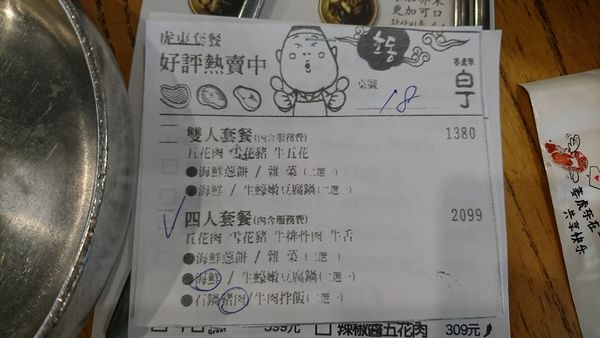 更加可口
虎東套餐
好評熱賣中
姜虎东
白丁
桌號 18
雙人套餐(內含服務費) 1380
五花肉 雪花豬 牛五花
●海鮮蔥餅 / 雜菜(二選一)
●海鮮 / 牛蠔嫩豆腐鍋(二選一)
四人套餐(內含服務費) 2099
五花肉 雪花豬 牛排骨肉 牛舌
●海鮮蔥餅 / 雜菜(二選一)
●海鮮 / 牛蠔嫩豆腐鍋(二選一)
●石鍋豬肉/牛肉拌飯(二選一)
399元 辣椒醬五花肉 309元
姜虎东在
共享快乐